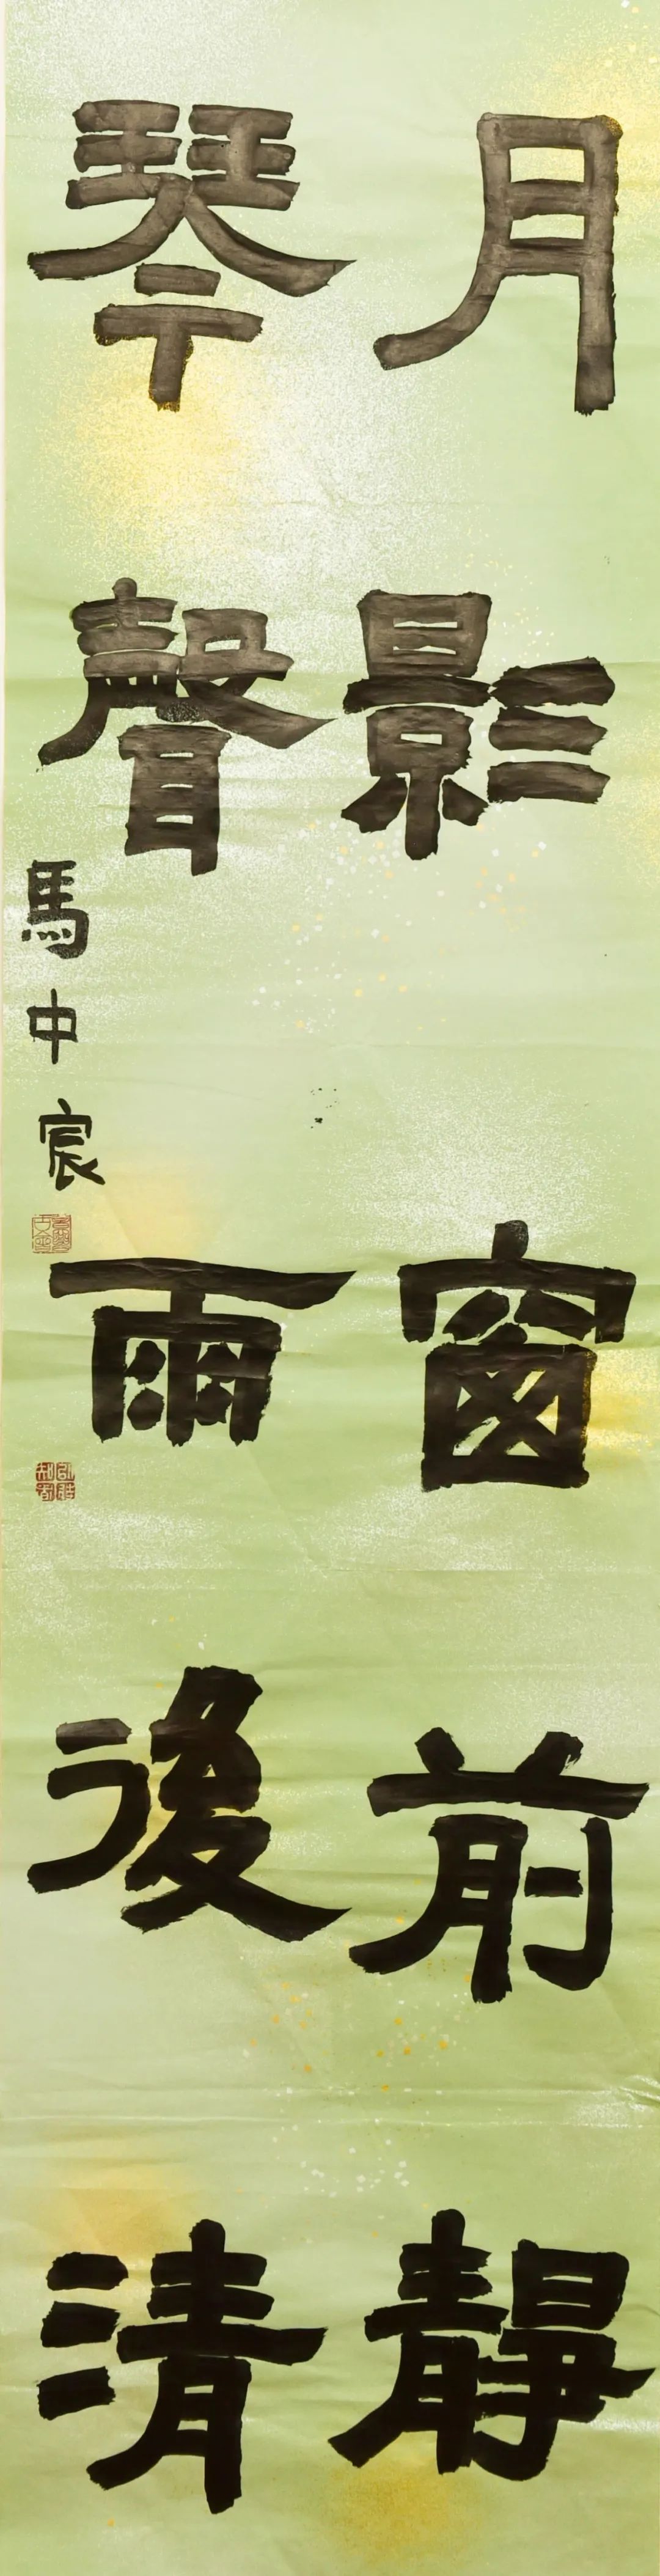 月影窗前靜
琴聲雨後清
馬中宸